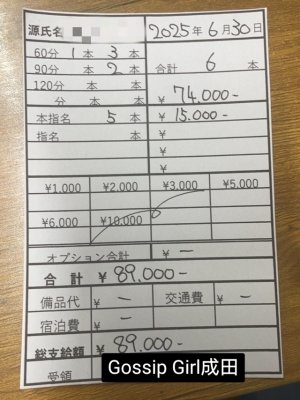 源氏名 2025年6月30日
60分 1本 3本
90分 本 2本 合計 6 本
120分 本 本 ¥ 74,000-
分 本 本
本指名 5 本 ¥ 15,000-
指名 本 ¥
¥
¥
¥1,000 ¥2,000 ¥3,000 ¥5,000
¥6,000 ¥10,000
オプション合計 ¥ ー
合計 ¥ 89,000-
備品代 ¥ ー 交通費 ¥ ー
宿泊費 ¥ ー
総支給額 ¥ 89,000-
受領
Gossip Girl成田